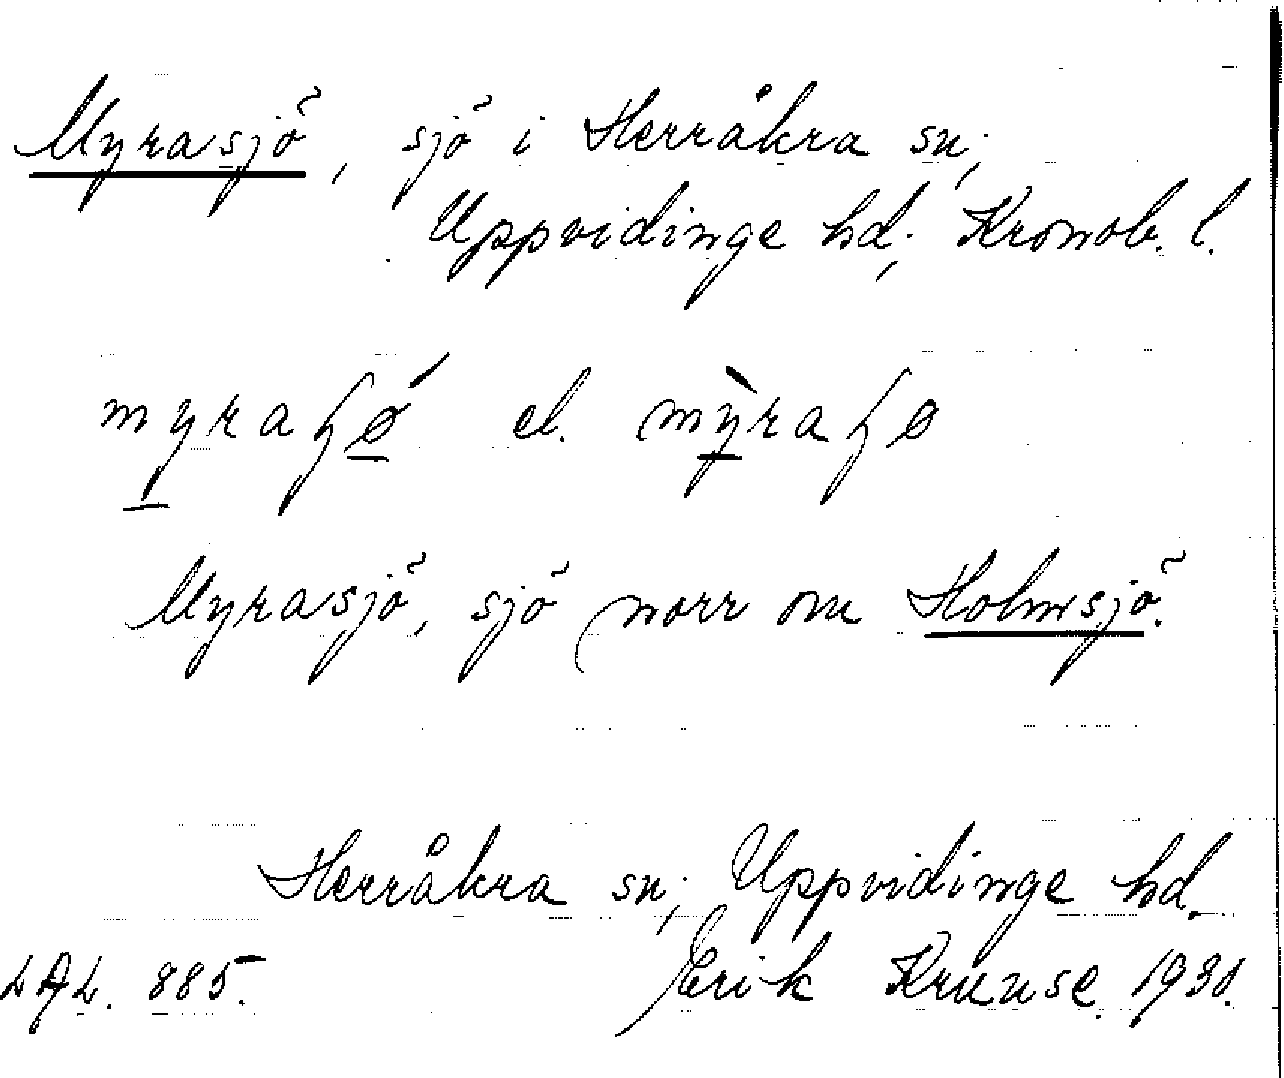 Myrasjö, sjö i Herråkra sn;
Uppvidinge hd; Kronob. l.
myraʃǿ el. mỳraʃø
Myrasjö, sjö norr om Holmsjö.
Herråkra sn; Uppvidinge hd.
885. Erik Kruuse.